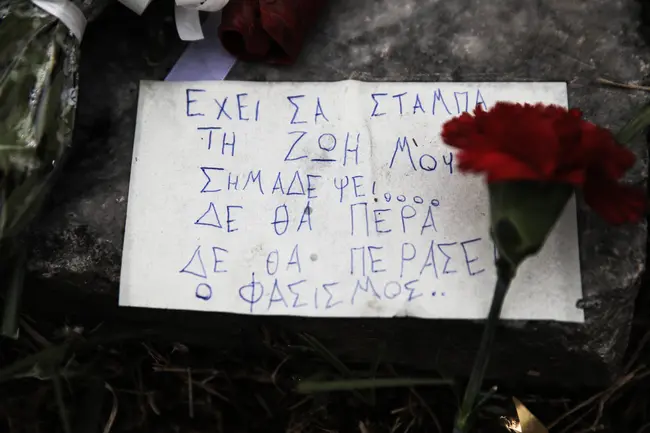 ΕΧΕΙ ΣΑ ΣΤΑΜΠΑ
ΤΗ ΖΩΗ ΜΟΥ
ΣΗΜΑΔΕΨΕ!....
ΔΕ ΘΑ ΠΕΡΑ
ΔΕ ΘΑ ΠΕΡΑΣΕ
Ο ΦΑΣΙΣΜΟΣ..